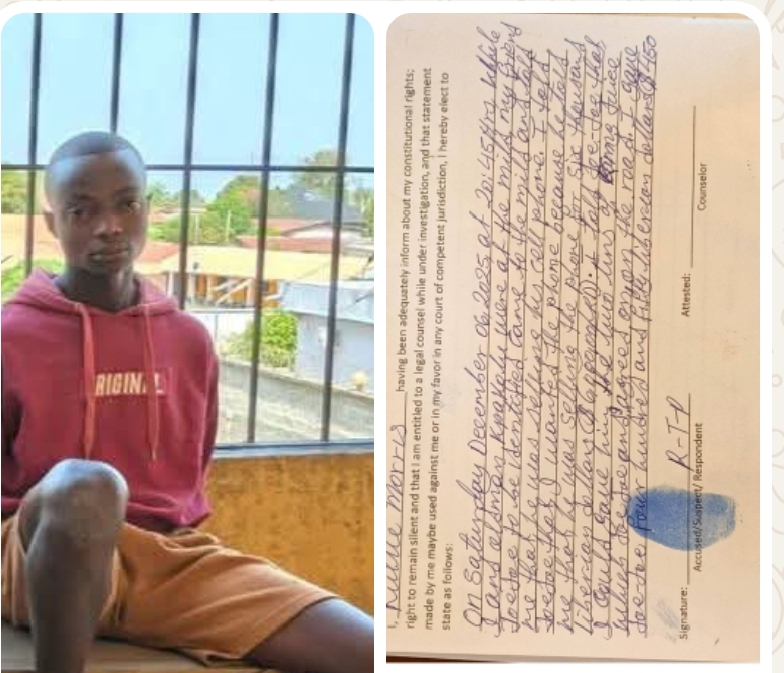 ORIGINAL
I, Morris having been adequately inform about my constitutional rights;
right to remain silent and that I am entitled to a legal counsel while under investigation, and that statement
made by me maybe used against me or in my favor in any court of competent jurisdiction, I hereby elect to
state as follows:
On Saturday December 06 2025 at 20:45Hrs while
I and were at the my friend
to be identified came to the and told
me that he was selling his cell phone. I told
that I wanted the phone because he told
me that he was selling the phone for six thousand
liberian dollar I told that
I could gave him the two tins of juice
which and agrees on the road. I gave
four hundred and fifty liberian dollars $450
Signature: R-T-P Attested:
Accused/Suspect/ Respondent Counselor